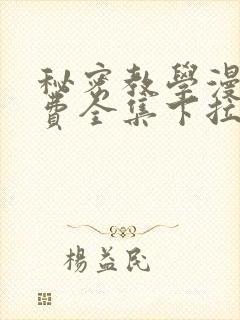 秘密教學漫
費全集卡拉
楊益民